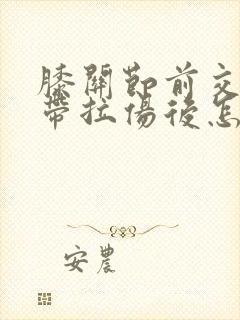 膝關節前交
帶拉傷後怎
安農